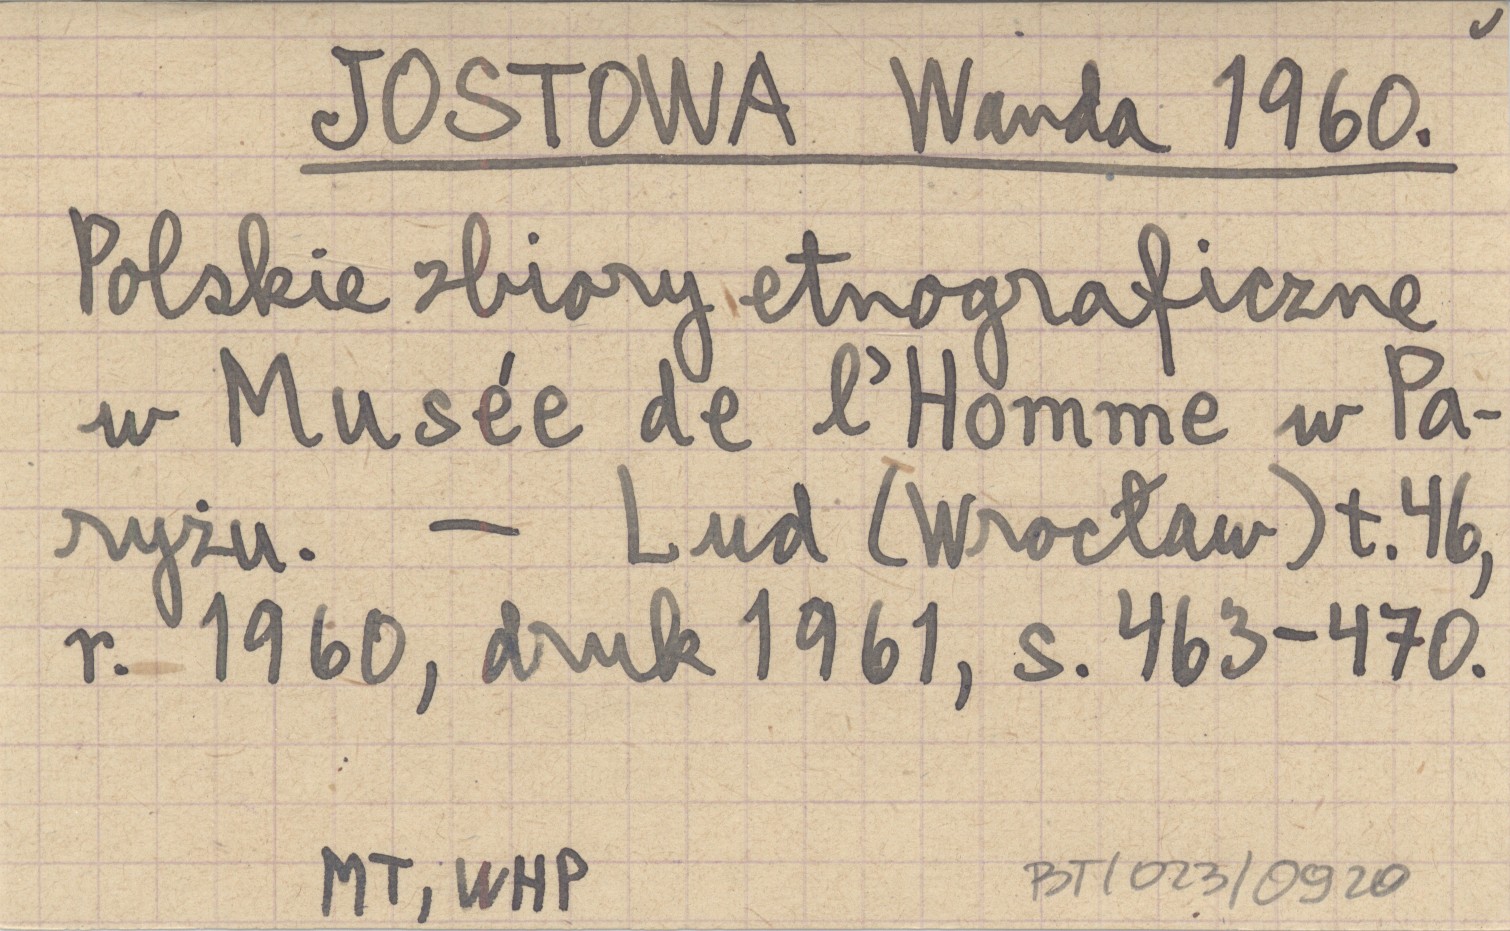 JOSTOWA Wanda 1960.
Polskie zbiory etnograficzne
w Musée de l'Homme w Pa-
ryżu. — Lud (Wrocław) t. 46,
r. 1960, druk 1961, s. 463-470.
MT, WHP
BT/023/0920